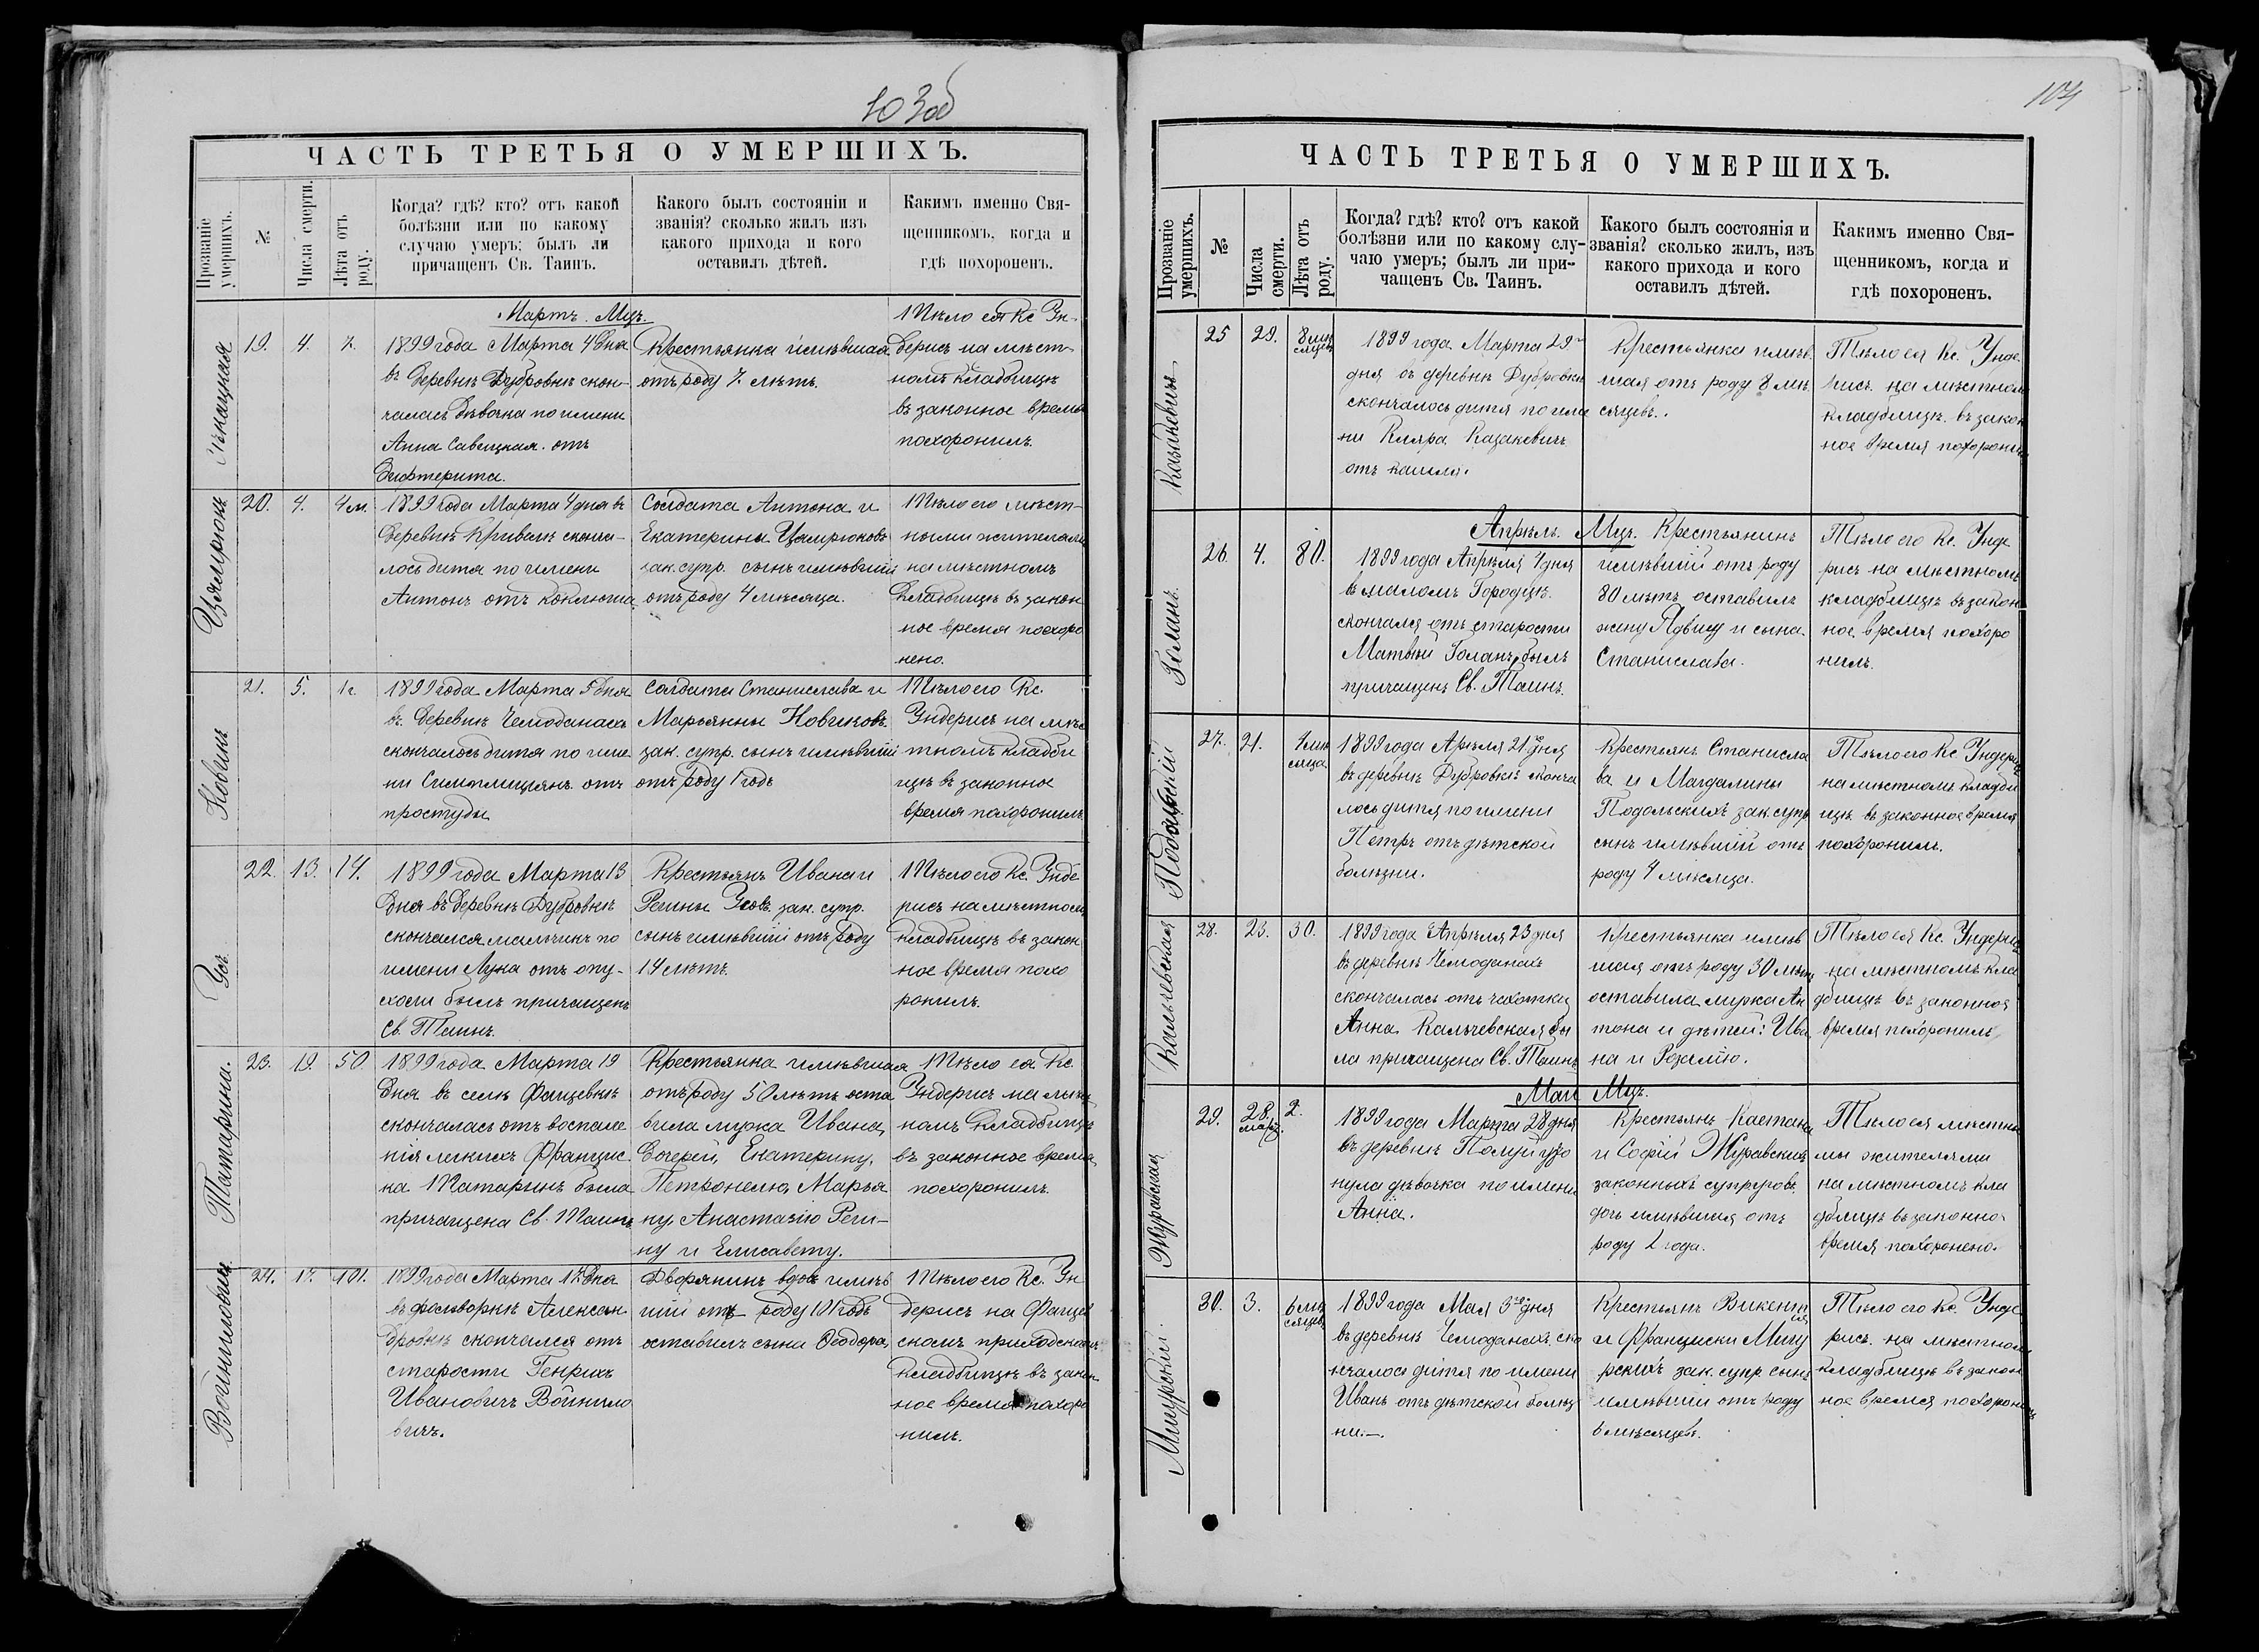 103об
ЧАСТЬ ТРЕТЬЯ О УМЕРШИХЪ.
Прозваніе умершихъ.
№
Числа смерти.
Лѣта отъ роду.
Когда? гдѣ? кто? отъ какой
болѣзни или по какому
случаю умеръ; былъ ли
причащенъ Св. Таинъ.
Какого былъ состояніи и
званія? сколько жилъ изъ
какого прихода и кого
оставилъ дѣтей.
Какимъ именно Свя-
щенникомъ, когда и
гдѣ похороненъ.
Мартъ. Мцъ.
19. 4. 7.
1899 года Марта 4 дня
въ деревнѣ Дубровкѣ скон-
чалась дѣвочка по имени
Анна Савецкая. отъ
дифтерита.
Крестьянка имѣвшая
отъ роду 7. лѣтъ.
Тѣло ея Кс Ун-
дерисъ на мѣст-
номъ кладбищѣ
въ законное время
похоронилъ.
Цямрюкъ
20. 4. 4 м
1899 года Марта 4 дня въ
деревнѣ Кривомъ сконча-
лось дитя по имени
Антонъ отъ коклюша
Солдата Антона и
Екатерины Цямрюковъ
зак. супр. сынъ имѣвшій
отъ роду 4 мѣсяца.
Тѣло его мѣст-
ными жителями
на мѣстномъ
кладбищѣ въ закон
ное время похоро
нено.
Новикъ
21. 5. 1 г
1899 года Марта 5 дня
въ деревнѣ Чемоданахъ
скончалось дитя по име
ни Симплиціянъ отъ
простуды
Солдата Станислава и
Марьянны Новиковъ.
зак. супр. сынъ имѣвшій
отъ роду 1 годъ
Тѣло его Кс.
Ундерисъ на мѣс
тномъ кладби
щѣ въ законное
время похоронилъ
Усъ.
22. 13. 14.
1899 года Марта 13
дня въ деревнѣ Дубровкѣ
скончался мальчикъ по
имени Лука отъ опу-
холи былъ причащенъ
Св. Таинъ.
Крестьянъ Ивана и
Регины Усовъ. зак. супр.
сынъ имѣвшій отъ роду
14 лѣтъ.
Тѣло его Кс. Унде
рисъ на мѣстномъ
кладбищѣ въ закон
ное время похо
ронилъ.
Татарина.
23. 19. 50
1899 года Марта 19
дня въ селѣ Фащевкѣ
скончалась отъ воспале
нія легкихъ Францис
ка Татаринъ была
причащена Св. Таинъ
Крестьянка имѣвшая
отъ роду 50 лѣтъ оста
вила мужа Ивана,
дочерей, Екатерину,
Петронелю, Марья
ну, Анастазію Реги-
ну и Елисавету.
Тѣло ея Кс.
Ундерисъ на мѣст
номъ кладбищѣ
въ законное время
похоронилъ.
Войниловичъ
24. 17. 101.
1899 года Марта 17 дня
въ фольворкѣ Алексан-
дровкѣ скончался отъ
старости Генрихъ
Ивановичъ Войнило
вичъ.
Дворянинъ вдовъ имѣв
шій отъ роду 101 годъ
оставилъ сына Ѳеодора,
Тѣло его Кс. Ун
дерисъ на Фащев
скомъ приходскомъ
кладбищѣ въ закон
ное время похоро
нилъ.
104
ЧАСТЬ ТРЕТЬЯ О УМЕРШИХЪ.
Прозваніе умершихъ.
№
Числа смерти.
Лѣта отъ роду.
Когда? гдѣ? кто? отъ какой
болѣзни или по какому слу-
чаю умеръ; былъ ли при-
чащенъ Св. Таинъ.
Какого былъ состоянія и
званія? сколько жилъ, изъ
какого прихода и кого
оставилъ дѣтей.
Какимъ именно Свя-
щенникомъ, когда и
гдѣ похороненъ.
Казакевичъ
25 29. 8 мѣ
сяцевъ
1899 года Марта 29
дня въ деревнѣ Дубровкѣ
скончалось дитя по име
ни Кляра Казакевичъ
отъ кашля.
Крестьянка имѣв.
шая отъ роду 8 мѣ.
сяцевъ.
Тѣло ея Кс. Унде.
рисъ. на мѣстномъ
кладбищѣ. въ закон
ное время похоронилъ
Апрѣль. Мцъ.
Голанъ.
26. 4. 80.
1899 года Апрѣля 4 дня
въ маломъ Городцѣ.
скончался отъ старости
Матвѣй Голанъ, былъ
причащенъ Св. Таинъ.
Крестьянинъ
имѣвшій отъ роду
80 лѣтъ оставилъ
жену Ядвигу и сына.
Станислава.
Тѣло его Кс. Унде
рисъ на мѣстномъ
кладбищѣ въ закон
ное время похоро
нилъ.
Подольскій
27. 21. 4 мѣ
сяца
1899 года Апрѣля 21го дня
въ деревнѣ Дубровкѣ сконча
лось дитя по имени
Петръ отъ дѣтской
болѣзни.
Крестьянъ Станисла
ва и Магдалины
Подольскихъ зак. супр
сынъ имѣвшій отъ
роду 4 мѣсяца.
Тѣло его Кс. Ундерисъ
на мѣстномъ кладби
щѣ въ законное время
похоронилъ.
Кальчевская
28. 23. 30.
1899 года Апрѣля 23 дня
въ деревнѣ Чемоданахъ
скончалась отъ чахотки
Анна Кальчевская бы
ла причащена Св. Таинъ
Крестьянка имѣв
шая отъ роду 30 лѣтъ
оставила мужа Ан
тона и дѣтей: Ива
на и Розалію.
Тѣло ея Кс. Ундерисъ
на мѣстномъ кла
дбищѣ въ законное
время похоронилъ
Май Мцъ.
Журавская
29. 28 марта. 2.
1899 года Марта 28 дня
въ деревнѣ Полуй уто
нула дѣвочка по имени
Анна.
Крестьянъ Каетана
и Софіи Журавскихъ
законныхъ супруговъ.
дочь имѣвшая отъ
роду 2 года.
Тѣло ея мѣстны
ми жителями
на мѣстномъ кла
дбищѣ въ законно
время похоронено.
Мигурскій.
30. 3. 6 мѣ
сяцевъ
1899 года Мая 3го дня
въ деревнѣ Чемоданахъ ско
нчалось дитя по имени
Иванъ отъ дѣтской болѣз
ни.—
Крестьянъ Викентія
и Франциски Мигу
рскихъ зак. супр. сынъ
имѣвшій отъ роду
6 мѣсяцевъ.
Тѣло его Кс. Унде
рисъ. на мѣстномъ
кладбищѣ въ закон
ное время похоронилъ